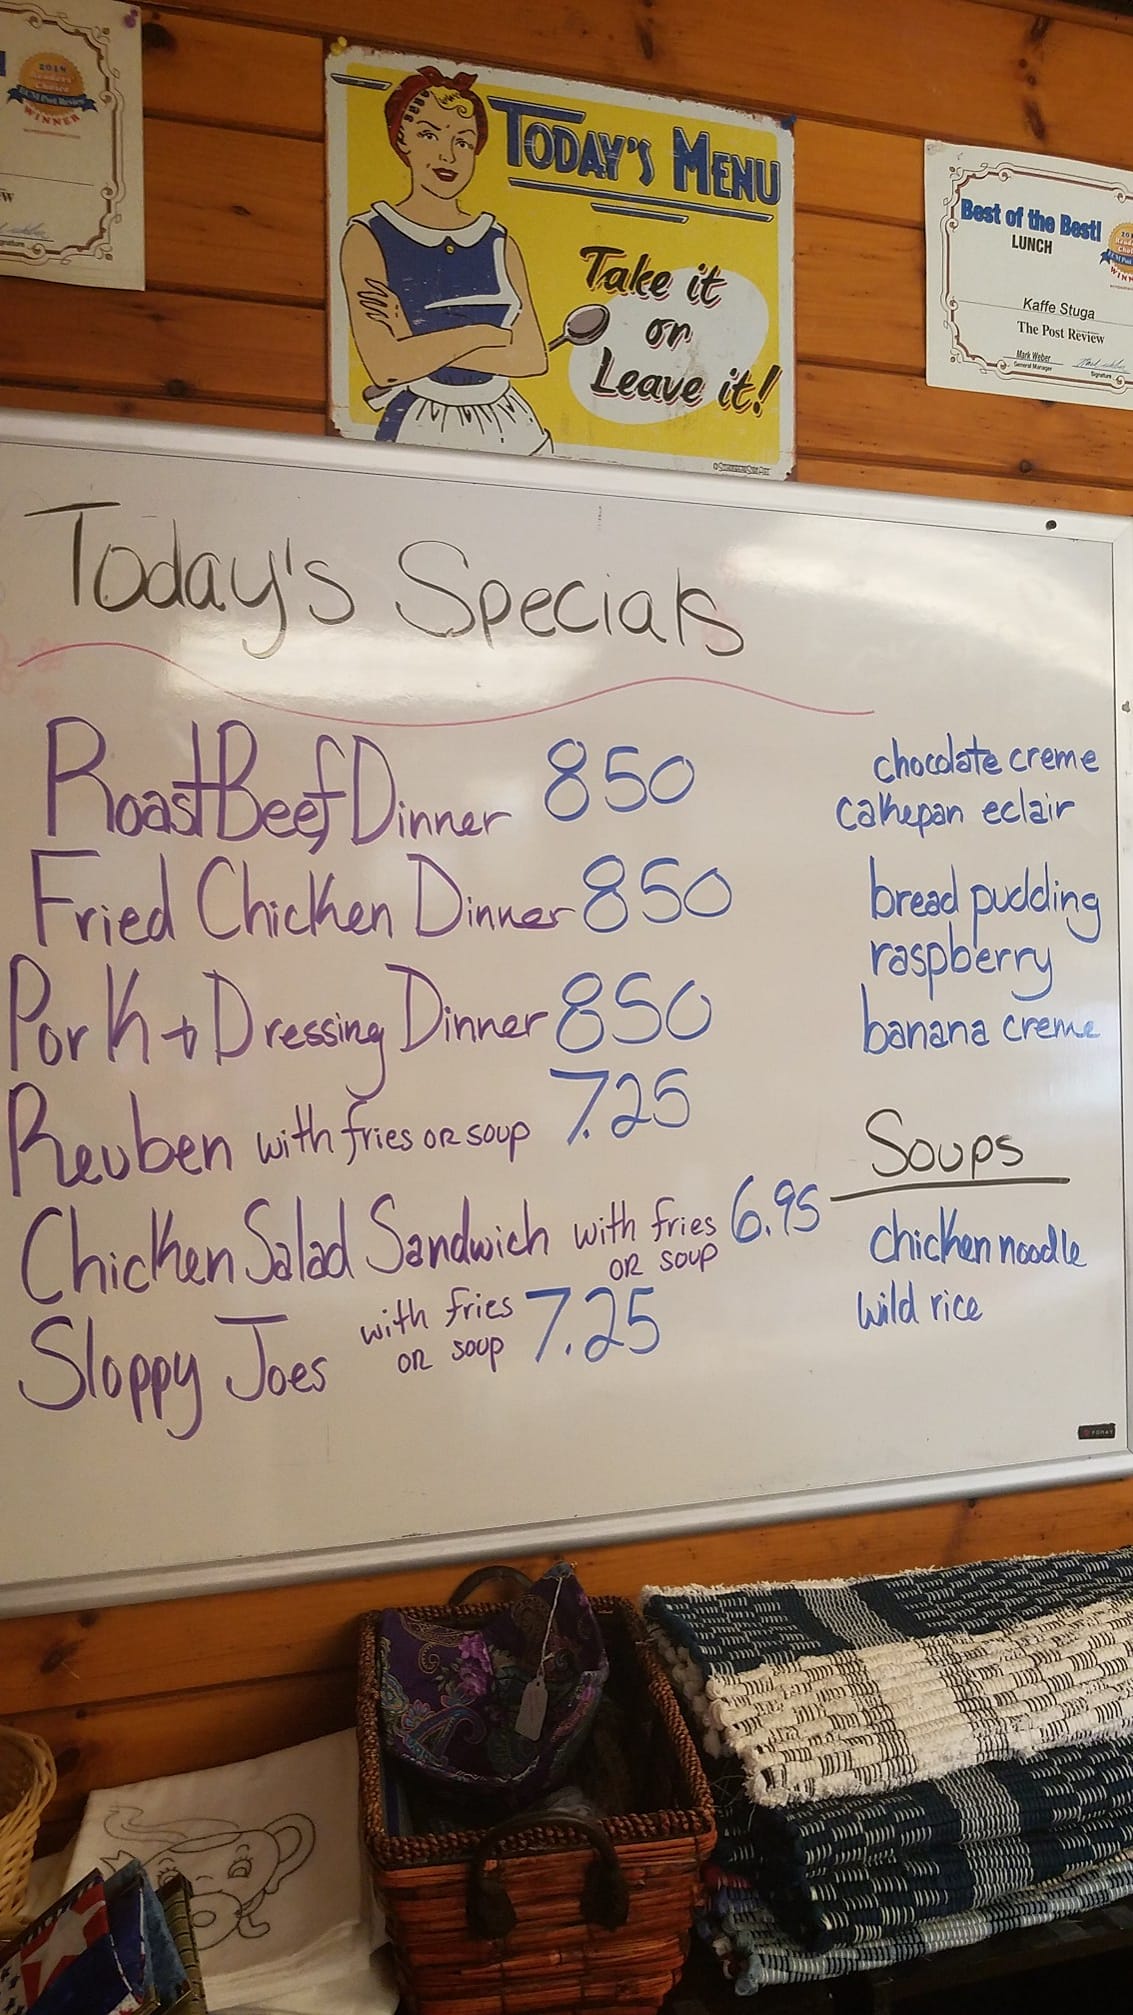 2019
Readers
Choice
ECM Post Review
WINNER
TODAY'S MENU
Take it
or
Leave it!
Best of the Best!
LUNCH
Kaffe Stuga
The Post Review
Mark Weber
General Manager
Signature
Today's Specials
Roast Beef Dinner 850
Fried Chicken Dinner 850
Pork + Dressing Dinner 850
Reuben with fries OR soup 7.25
Chicken Salad Sandwich with fries OR soup 6.95
Sloppy Joes with fries OR soup 7.25
chocolate creme
cakepan eclair
bread pudding
raspberry
banana creme
Soups
chicken noodle
wild rice